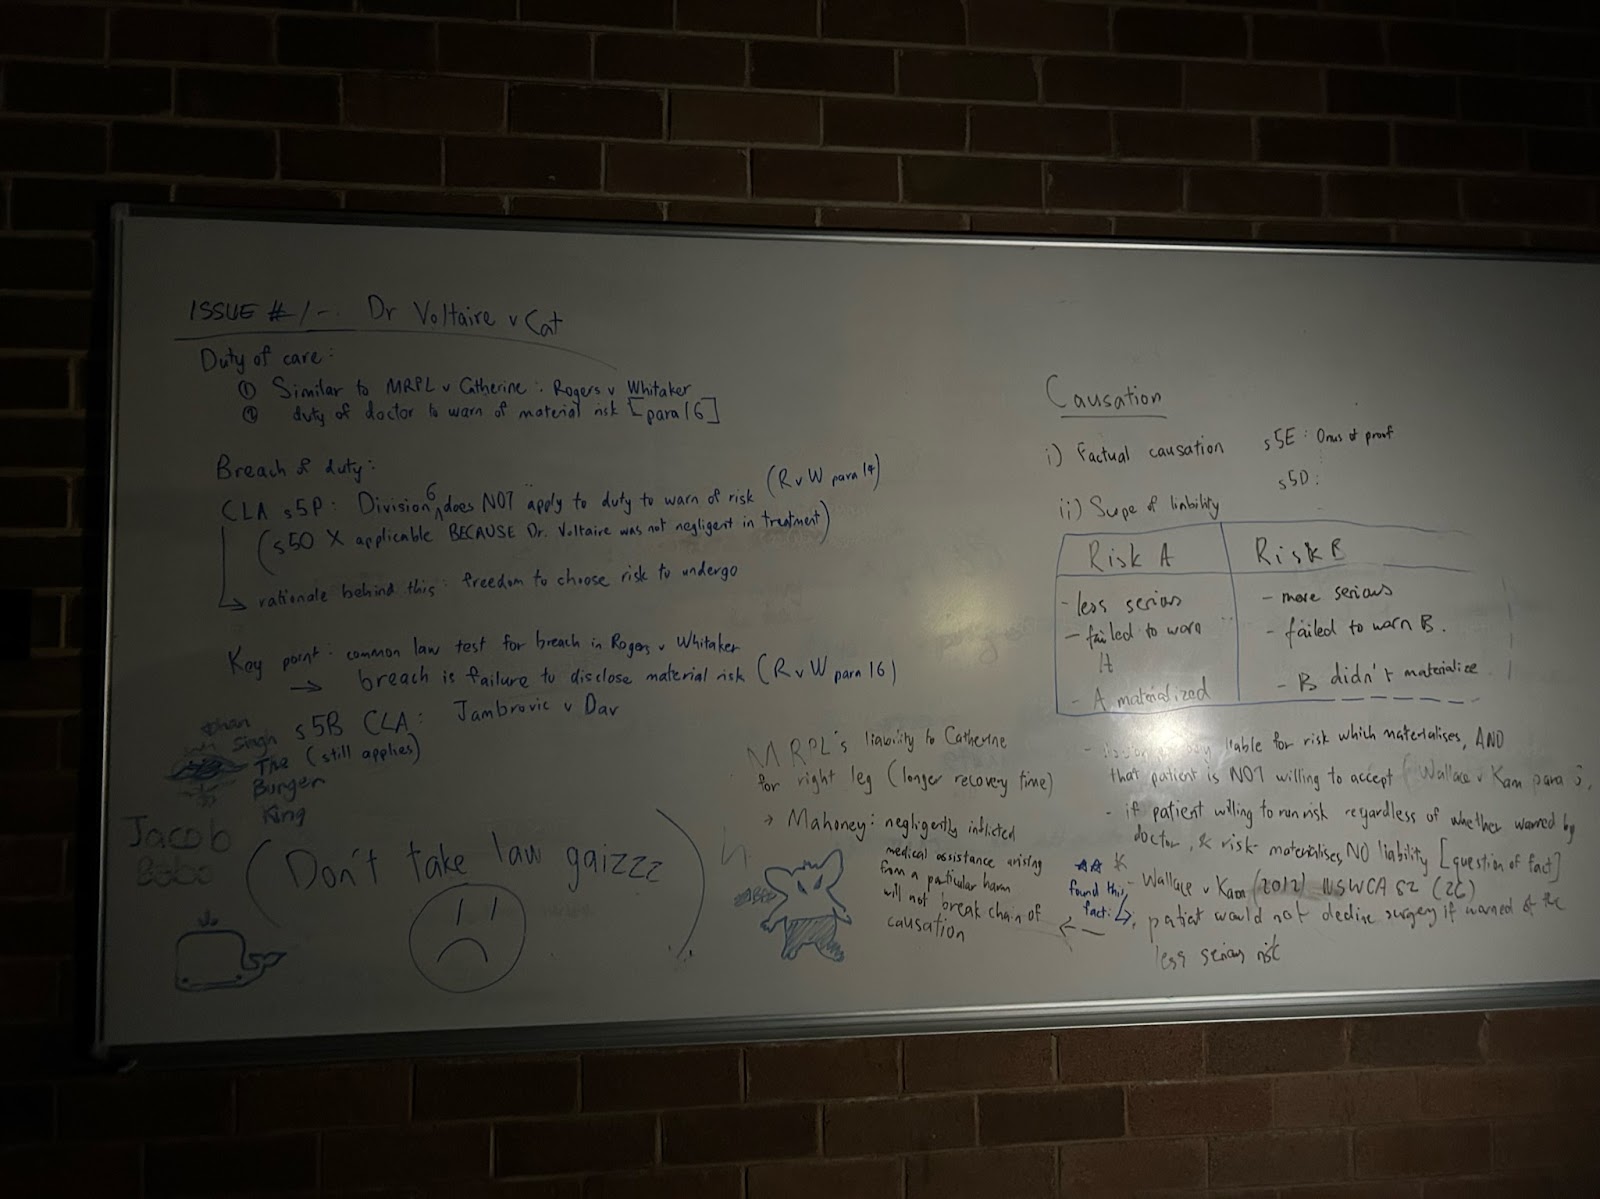 ISSUE # 1 - Dr Voltaire v Cat
Duty of care:
① Similar to MRPL v Catherine: Rogers v Whitaker
② duty of doctor to warn of material risk [para 16]
Breach of duty:
CLA s5P: Division 6 does NOT apply to duty to warn of risk (R v W para 14)
(s5O X applicable BECAUSE Dr. Voltaire was not negligent in treatment)
rationale behind this: freedom to choose risk to undergo
Key point: common law test for breach in Rogers v Whitaker
→ breach is failure to disclose material risk (R v W para 16)
s5B CLA: Jambrovic v Dav
(still applies)
Singh
The
Burger
King
Jacob
Bobo
(Don't take law gaizzz)
MRPL's liability to Catherine
for right leg (longer recovery time)
→ Mahoney: negligently inflicted
medical assistance arising
from a particular harm
will not break chain of
causation
Causation
i) Factual causation s5E: Onus of proof
s5D:
ii) Scope of liability
Risk A
- less serious
- failed to warn
A
- A materialized
Risk B
- more serious
- failed to warn B.
- B didn't materialize
liable for risk which materialises, AND
that patient is NOT willing to accept (Wallace v Kam para
- if patient willing to run risk regardless of whether warned by
doctor, & risk materialises, NO liability [question of fact]
- Wallace v Kam (2012) NSWCA 82 (26)
found this
fact:
patient would not decline surgery if warned of the
less serious risk